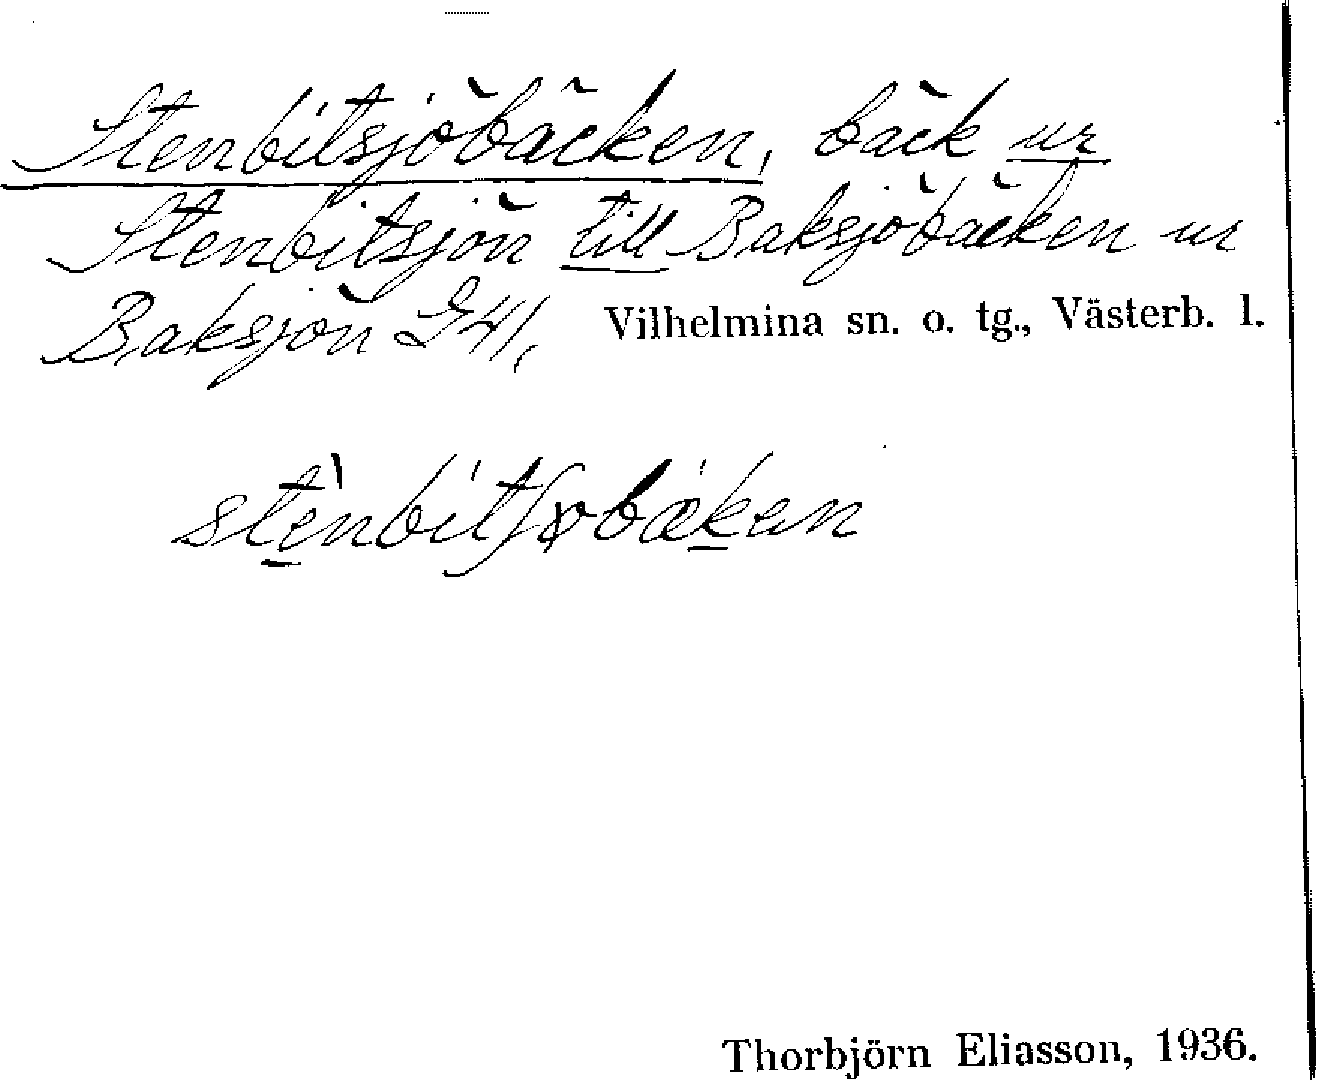 Stenbitsjöbäcken, bäck ur
Stenbitsjön till Baksjöbäcken ur
Baksjön G41, Vilhelmina sn. o. tg., Västerb. l.
Thorbjörn Eliasson, 1936.